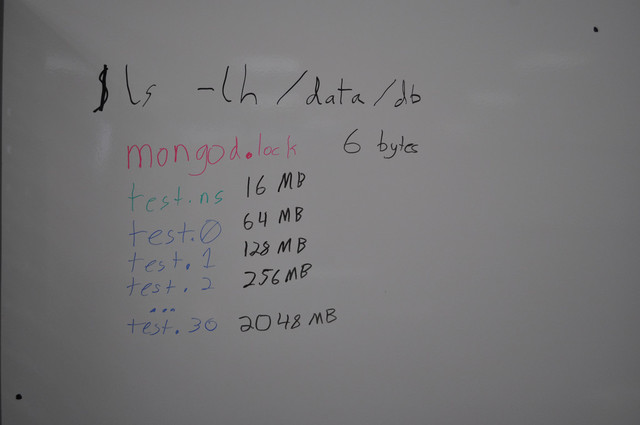 $ ls -lh /data/db
mongod.lock 6 bytes
test.ns 16 MB
test.0 64 MB
test.1 128 MB
test.2 256 MB
...
test.30 2048 MB